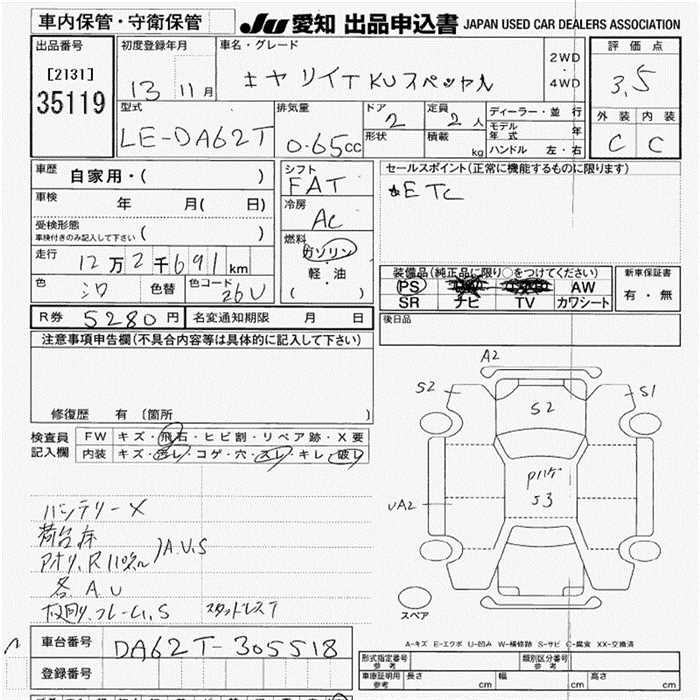 車内保管・守衛保管
JU 愛知 出品申込書 JAPAN USED CAR DEALERS ASSOCIATION
出品番号 初度登録年月 車名・グレード 2WD・4WD 評価点
[2131] 35119 13 11月 キャリイT KUスペシャル 3.5
型式 排気量 ドア 定員 ディーラー・並行 外装 内装
LE-DA62T 0.65cc 2 2人 モデル年式 年 C C
形状 積載 kg ハンドル 左・右
車歴 自家用・( ) シフト セールスポイント(正常に機能するものに限ります)
FAT ★ETC
車検 年 月( 日) 冷房
AC
受検形態 ( )
車検付きのみ記入して下さい
燃料 ガソリン
軽・油
( )
走行 12万2千691km
装備品(純正品に限り○をつけてください) 新車保証書
色 シロ 色替 色コード 26U PS AW 有・無
SR ナビ TV カワシート
R券 5280円 名変通知期限 月 日 後日品
注意事項申告欄(不具合内容等は具体的に記入して下さい)
修復歴 有 (箇所 )
A2
S2 S2 S1
検査員 FW キズ・飛石・ヒビ割・リペア跡・X要
記入欄 内装 キズ・ヨゴレ・コゲ・穴・スレ・キレ・破レ
S3
UA2
バッテリーX
荷台床
アオリ、R A.U.S
各 A.U
フレーム、S スタットレスT
スペア
A-キズ E-エクボ U-凹み W-補修跡 S-サビ C-腐食 XX-交換済
車台番号 DA62T-305518
形式指定番号 参考 類別区分番号 参考
登録番号
車庫証明用 参考 長さ cm 幅 cm 高さ cm